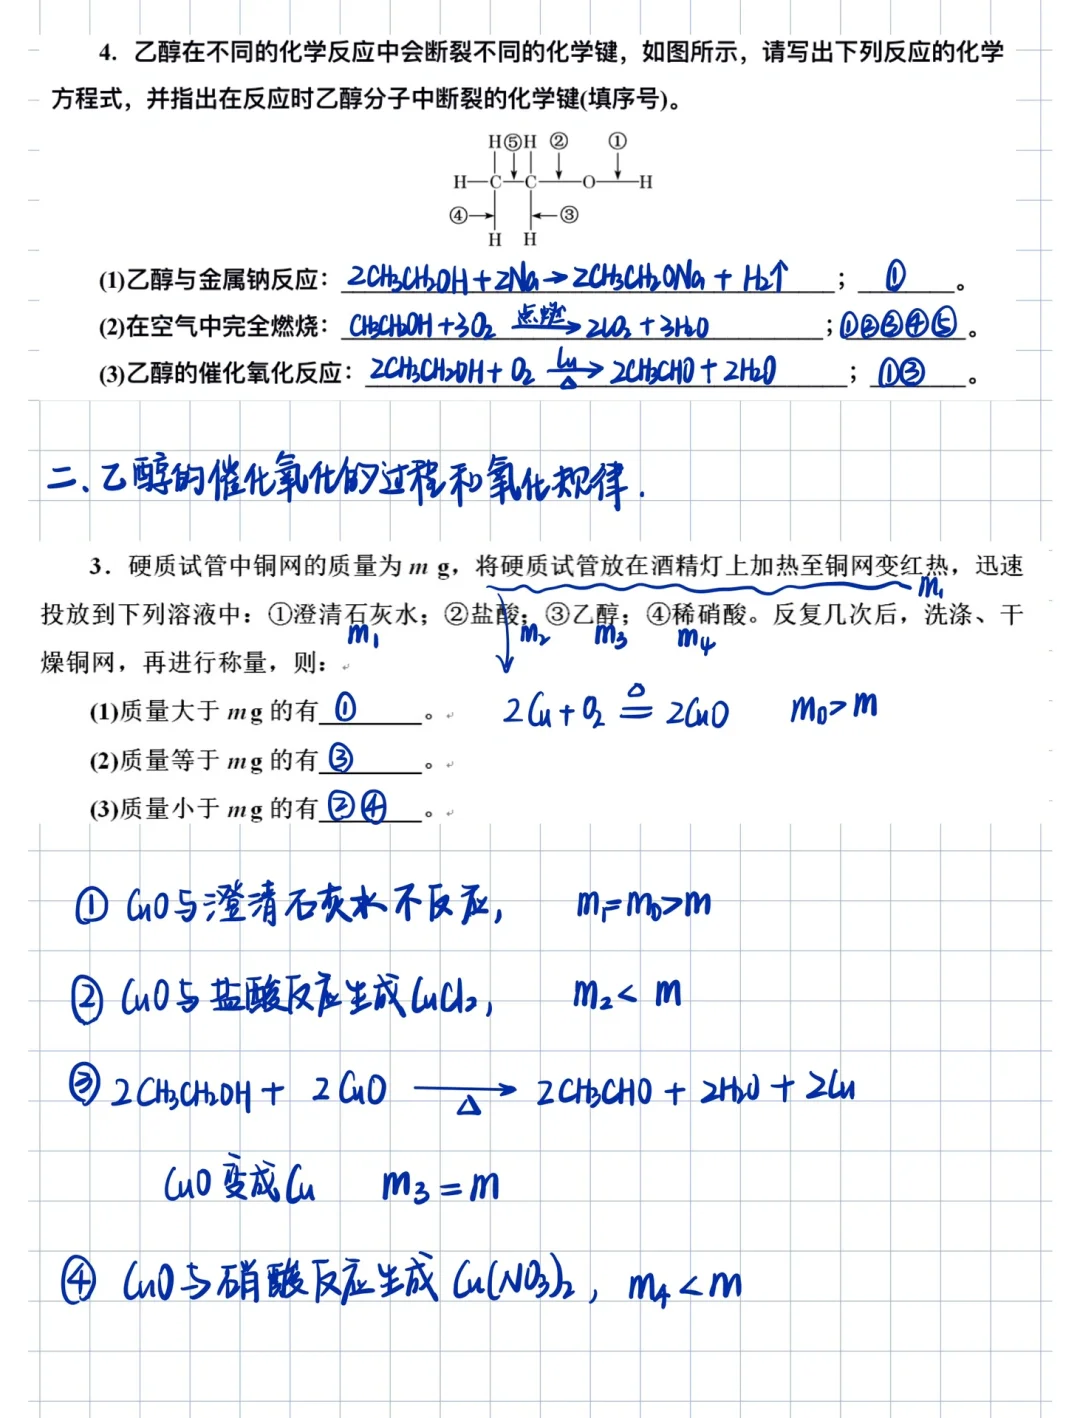 4. 乙醇在不同的化学反应中会断裂不同的化学键，如图所示，请写出下列反应的化学
方程式，并指出在反应时乙醇分子中断裂的化学键(填序号)。
H⑤H ② ①
H—C—C—O—H
④ ③
H H
(1)乙醇与金属钠反应：2CH3CH2OH+2Na→2CH3CH2ONa+H2↑；①。
(2)在空气中完全燃烧：CH3CH2OH+3O2 点燃→ 2CO2+3H2O；①②③④⑤。
(3)乙醇的催化氧化反应：2CH3CH2OH+O2 Cu△→ 2CH3CHO+2H2O；①③。
二、乙醇的催化氧化的过程和氧化规律.
3．硬质试管中铜网的质量为 m g，将硬质试管放在酒精灯上加热至铜网变红热，迅速
m1
投放到下列溶液中：①澄清石灰水；②盐酸；③乙醇；④稀硝酸。反复几次后，洗涤、干
m1 m2 m3 m4
燥铜网，再进行称量，则：
(1)质量大于 m g 的有①。
2Cu+O2 △= 2CuO m0>m
(2)质量等于 m g 的有③。
(3)质量小于 m g 的有②④。
① CuO与澄清石灰水不反应, m1=m0>m
② CuO与盐酸反应生成CuCl2, m2<m
③ 2CH3CH2OH+2CuO △→ 2CH3CHO+2H2O+2Cu
CuO变成Cu m3=m
④ CuO与硝酸反应生成Cu(NO3)2, m4<m